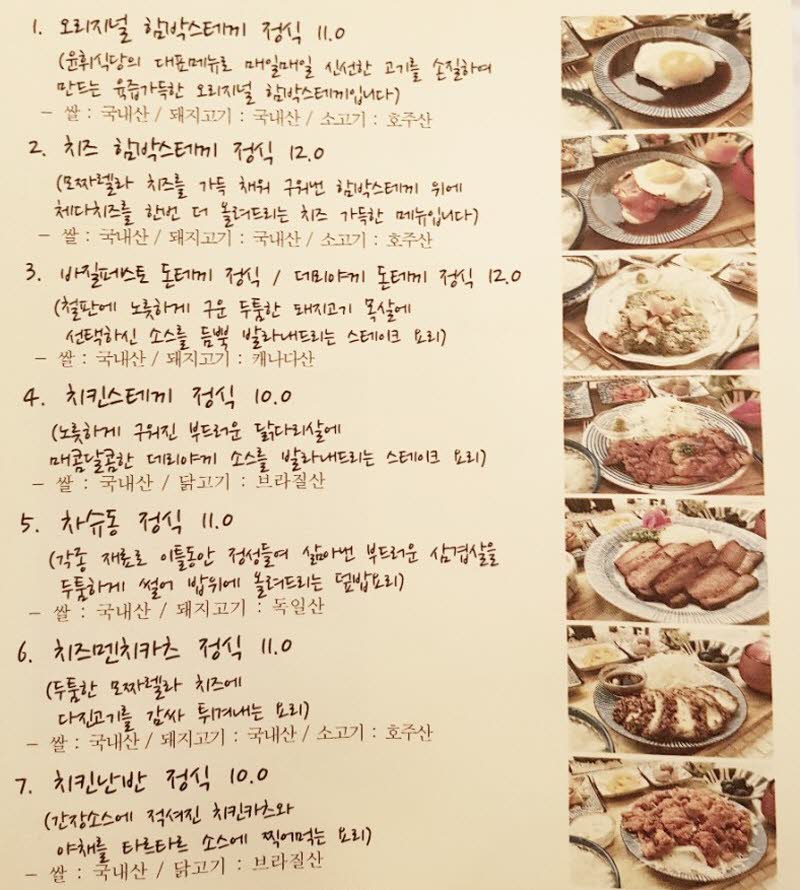 1. 오리지널 함박스테끼 정식 11.0
(윤휘식당의 대표메뉴로 매일매일 신선한 고기를 손질하여
만드는 육즙가득한 오리지널 함박스테끼입니다)
- 쌀 : 국내산 / 돼지고기 : 국내산 / 소고기 : 호주산
2. 치즈 함박스테끼 정식 12.0
(모짜렐라 치즈를 가득 채워 구워낸 함박스테끼 위에
체다치즈를 한번 더 올려드리는 치즈 가득한 메뉴입니다)
- 쌀 : 국내산 / 돼지고기 : 국내산 / 소고기 : 호주산
3. 바질페스토 돈테끼 정식 / 데리야끼 돈테끼 정식 12.0
(철판에 노릇하게 구운 두툼한 돼지고기 목살에
선택하신 소스를 듬뿍 발라내드리는 스테이크 요리)
- 쌀 : 국내산 / 돼지고기 : 캐나다산
4. 치킨스테끼 정식 10.0
(노릇하게 구워진 부드러운 닭다리살에
매콤달콤한 데리야끼 소스를 발라내드리는 스테이크 요리)
- 쌀 : 국내산 / 닭고기 : 브라질산
5. 차슈동 정식 11.0
(각종 재료로 이틀동안 정성들여 삶아낸 부드러운 삼겹살을
두툼하게 썰어 밥위에 올려드리는 덮밥요리)
- 쌀 : 국내산 / 돼지고기 : 독일산
6. 치즈멘치카츠 정식 11.0
(두툼한 모짜렐라 치즈에
다진고기를 감싸 튀겨내는 요리)
- 쌀 : 국내산 / 돼지고기 : 국내산 / 소고기 : 호주산
7. 치킨난반 정식 10.0
(간장소스에 적셔진 치킨카츠와
야채를 타르타르 소스에 찍어먹는 요리)
- 쌀 : 국내산 / 닭고기 : 브라질산